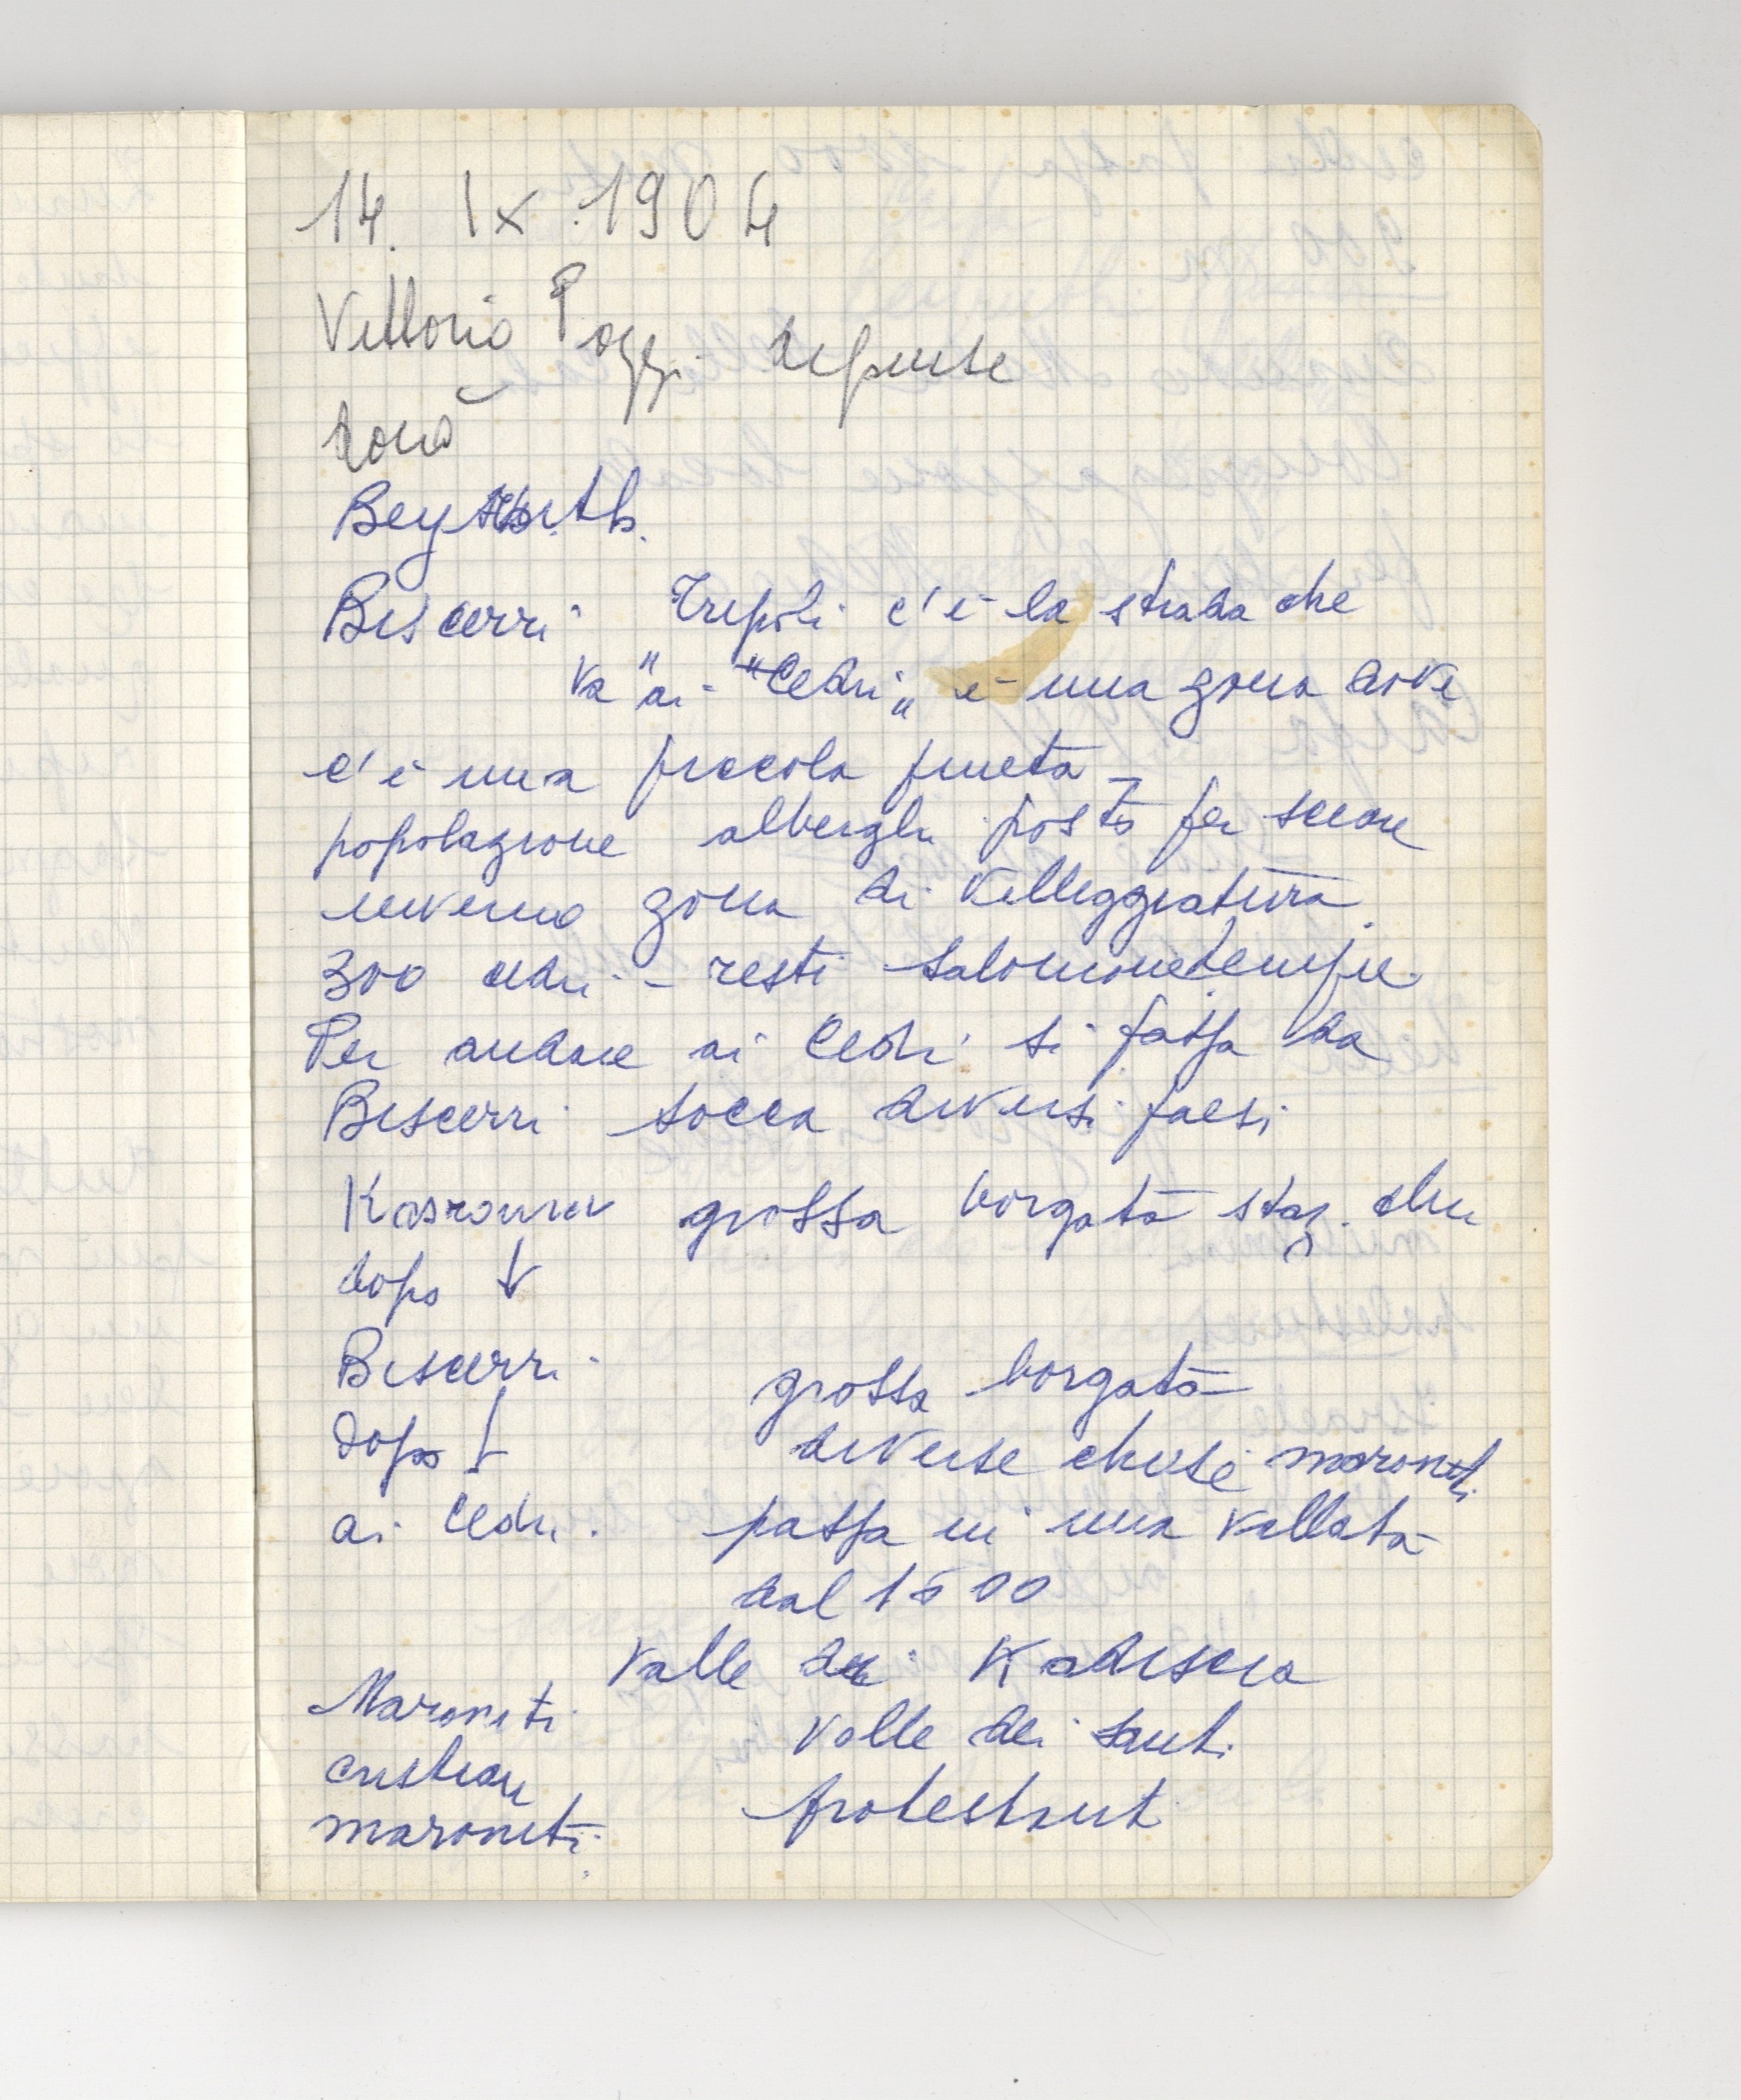 14. IX. 1904
Vittorio Poggi dipinse
donò
Beyruth.
Biscerri Tripoli c'è la strada che
va "ai "Cedri" è una zona dove
c'è una piccola pineta -
popolazione alberghi posto per sciare
inverno zona di villeggiatura
300 cedri - resti Salomone tempie
Per andare ai Cedri si passa da
Biscerri tocca diversi paesi
grossa borgata staz. clim
dopo ↓
Biscerri grossa borgata
dopo ↓ diverse chiese maroniti
ai Cedri. passa in una vallata
dal 1500
Valle di Kadiscia
Maroniti valle dei santi
cristiani
maroniti protestanti